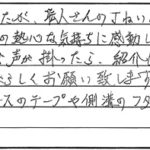 たが、職人さんのていねい
の熱心な気持ちに感動し
声が掛ったら、紹介
らしくお願い致します
ースのテープや側溝のフタ